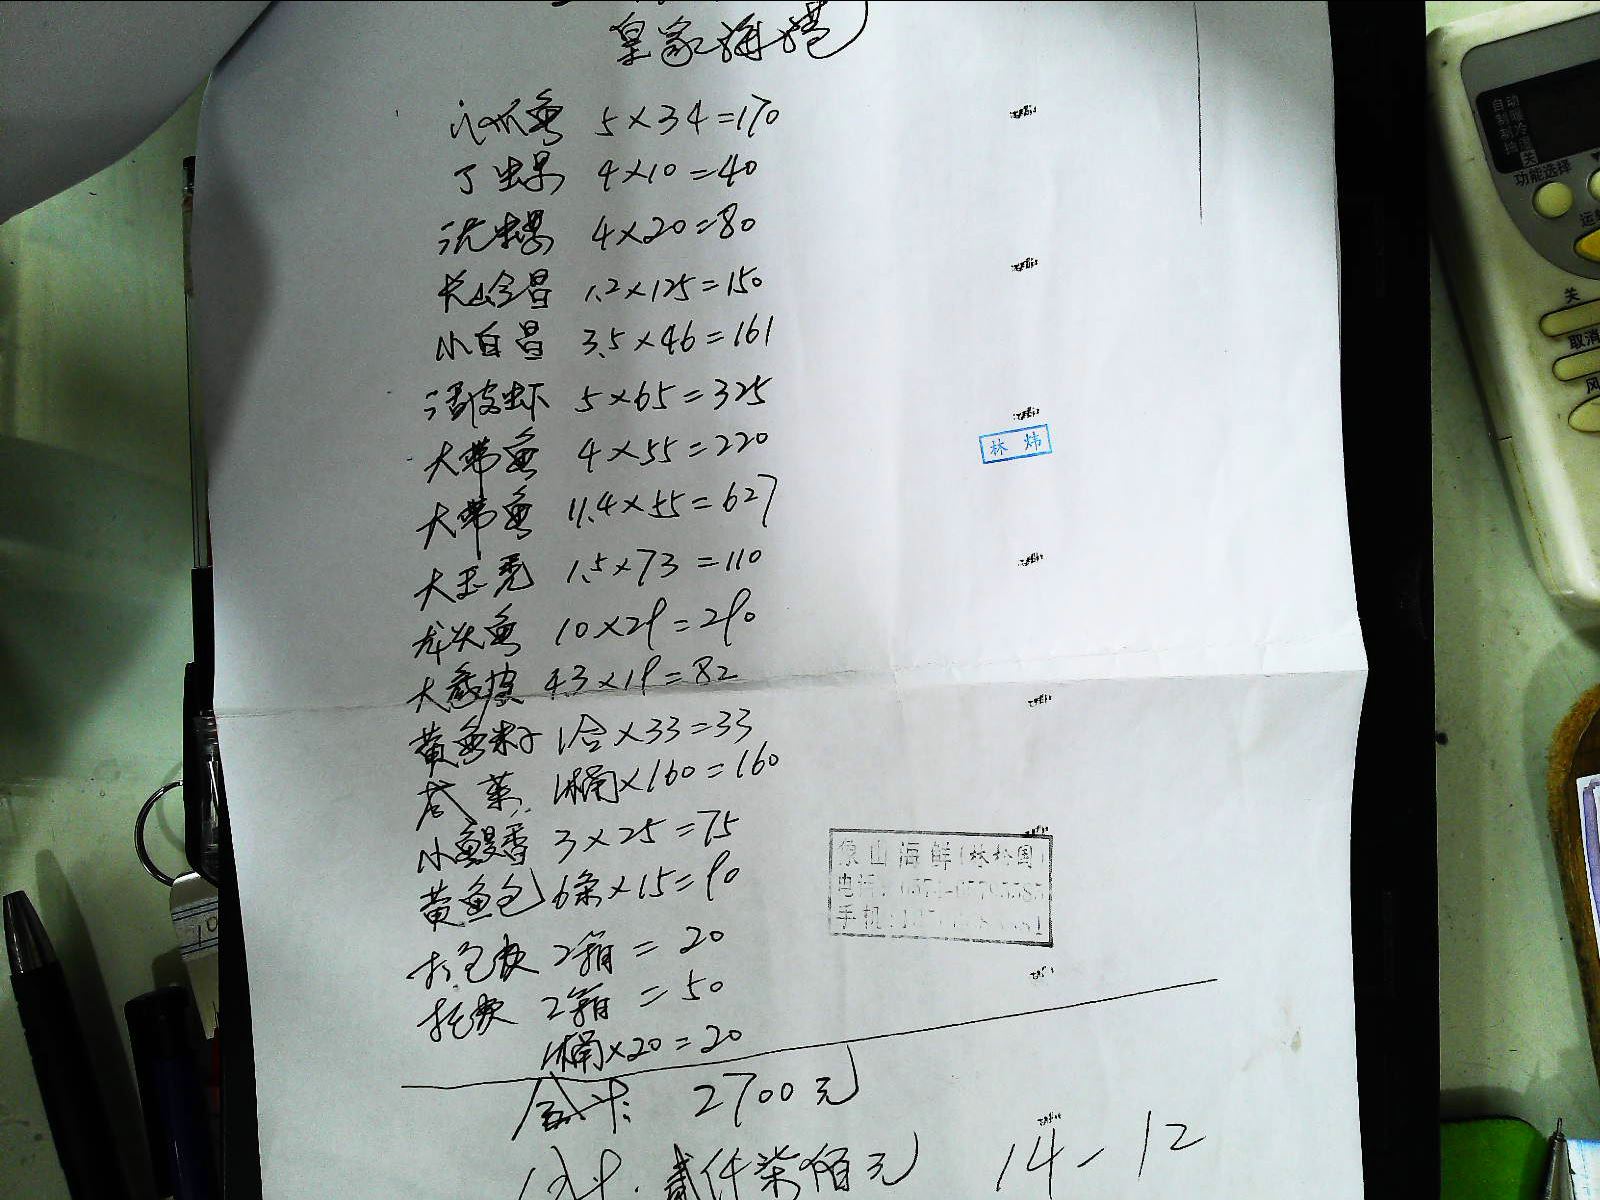 皇家海塘
5×34=170
丁螺 4×10=40
4×20=80
1.2×125=150
小白昌 3.5×46=161
活皮虾 5×65=325
大带鱼 4×55=220
大带鱼 11.4×55=627
大玉秃 1.5×73=110
龙头鱼 10×29=290
大 4.3×19=82
黄鱼籽 1合×33=33
1桶×160=160
小鳗香 3×25=75
黄鱼包 6条×15=90
打包费 2箱=20
托费 2箱=50
1桶×20=20
合计: 2700元
合计: 贰仟柒佰元 14-12
林 炜
象山海鲜(林松国)
电话:
手机:
自动
功能选择
关
取消
风